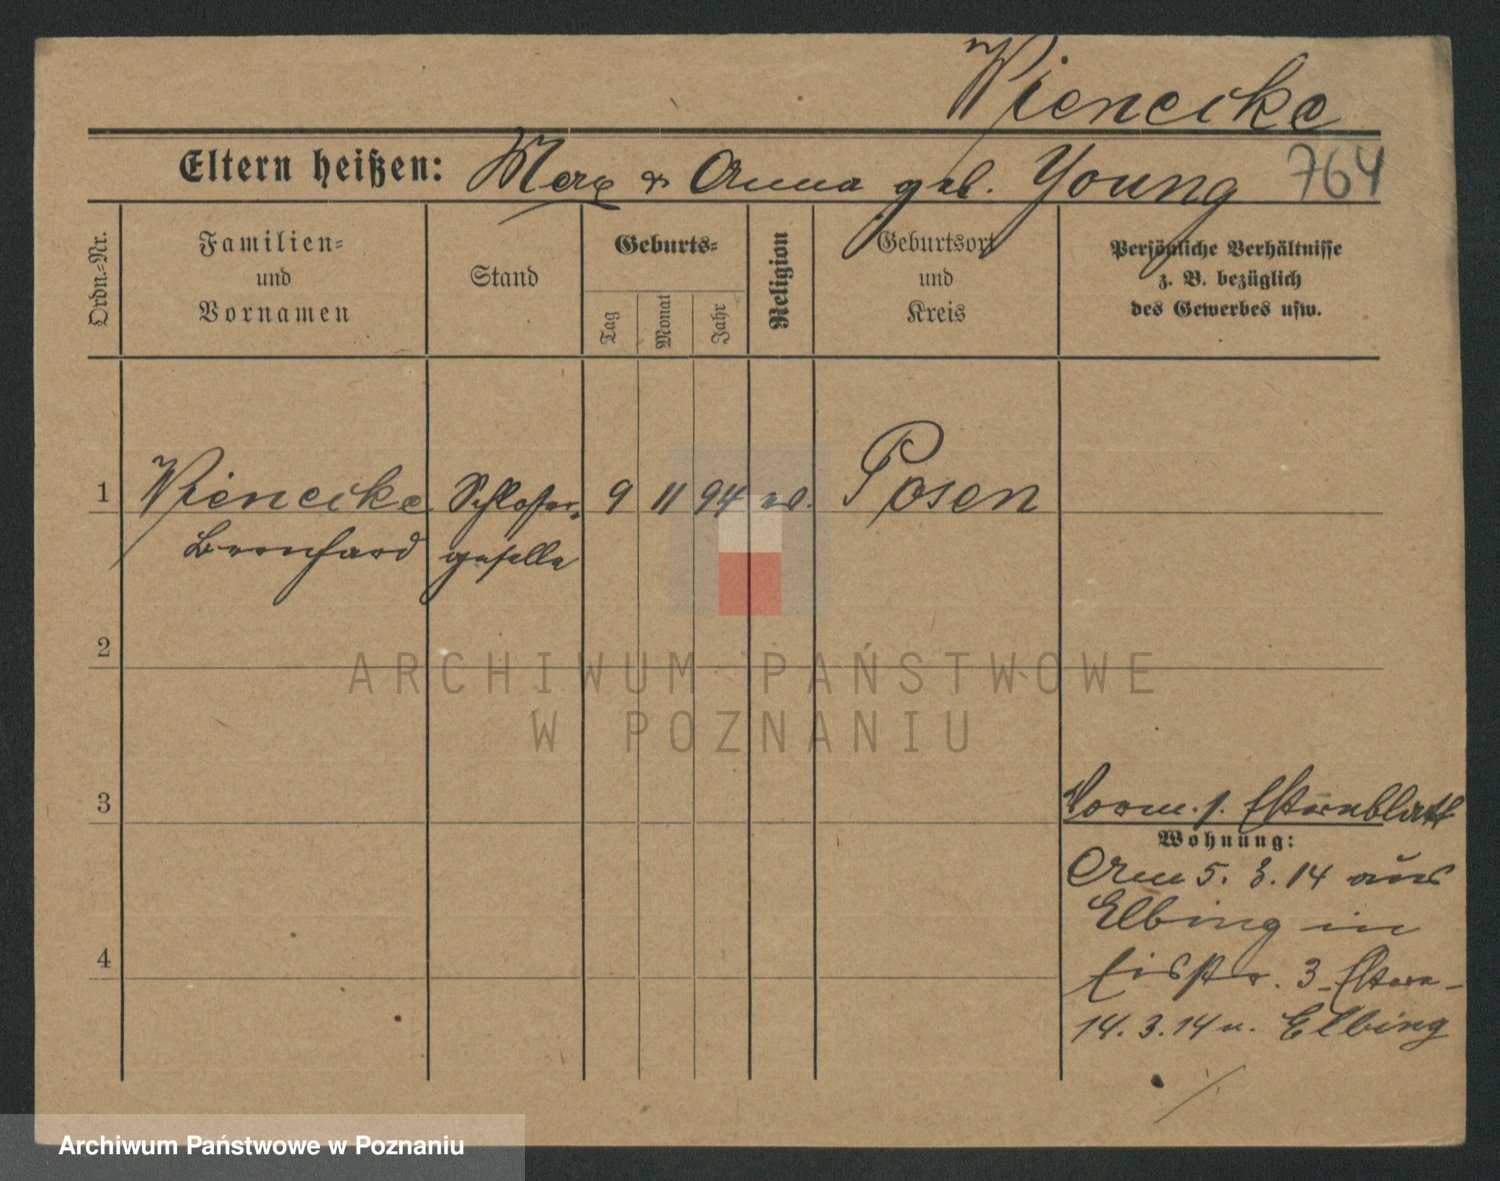 Wienecke
Eltern heißen: Max & Anna geb. Young 764
Ordn.-Nr.
Familien-
und
Vornamen
Stand
Geburts-
Tag
Monat
Jahr
Religion
Geburtsort
und
Kreis
Persönliche Verhältnisse
z. B. bezüglich
des Gewerbes usw.
1 Wienecke Schlosser- 9 11 94 ev. Posen
Bernhard geselle
2
ARCHIWUM PAŃSTWOWE
W POZNANIU
3
Vorm. s. Elternblatt
Wohnung:
Am 5. 3. 14 aus
Elbing in
3 Eltern
4
14. 3. 14 n. Elbing
Archiwum Państwowe w Poznaniu